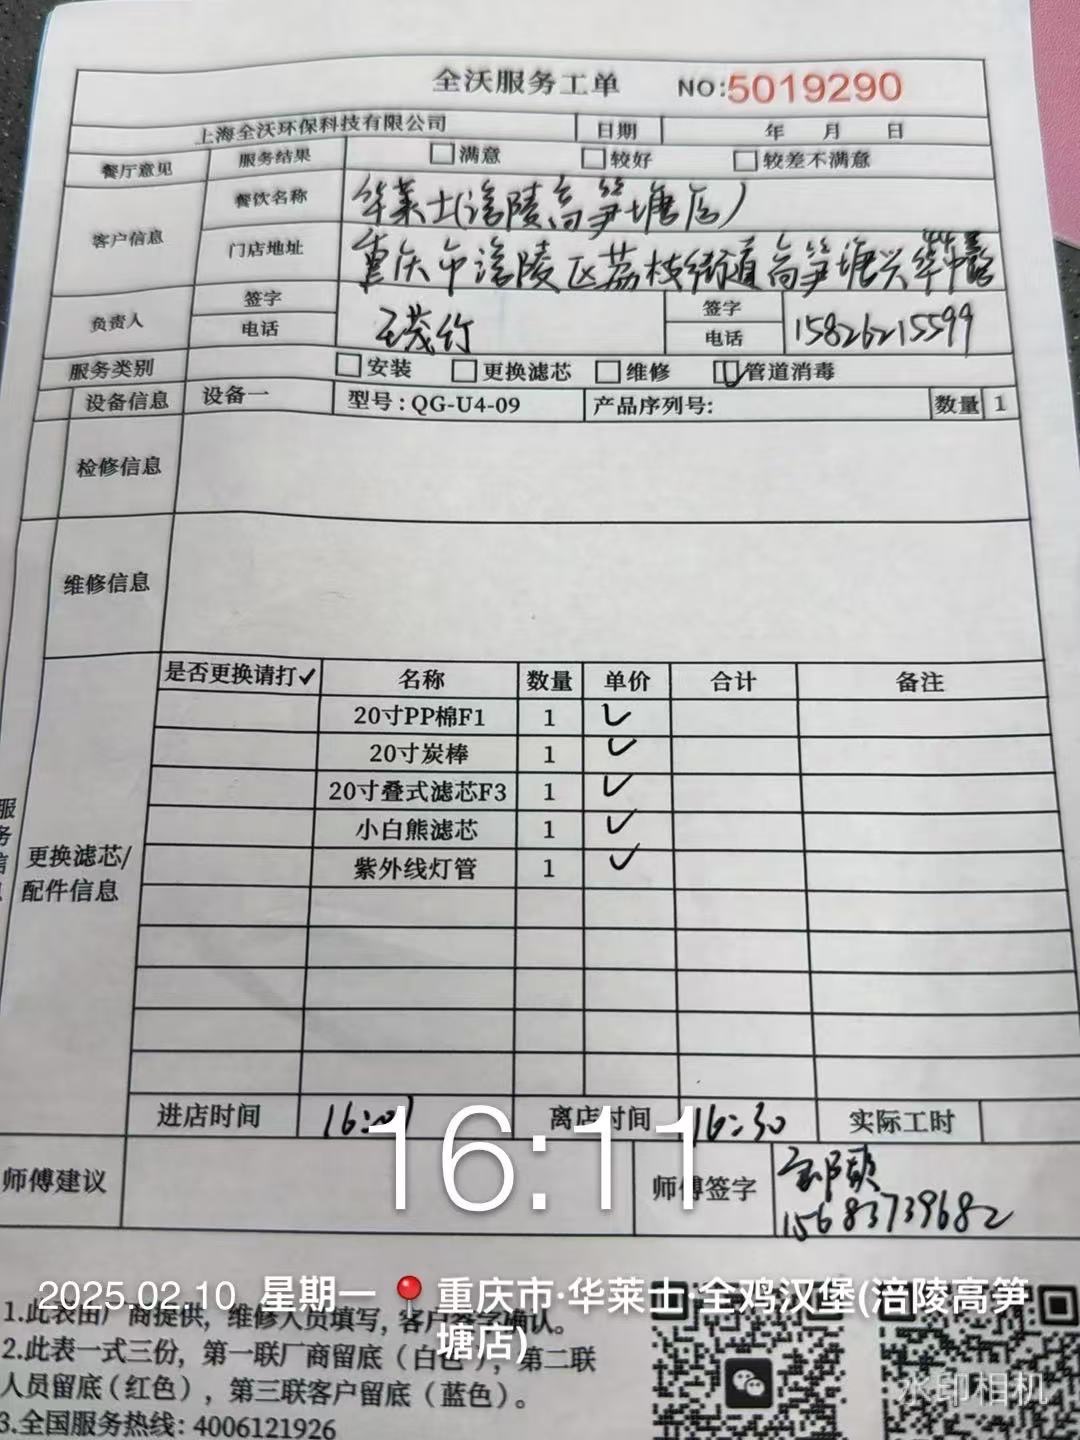 全沃服务工单 NO:5019290
上海全沃环保科技有限公司 日期 年 月 日
餐厅意见 服务结果 满意 较好 较差不满意
客户信息 餐饮名称 华莱士(涪陵高笋塘店)
门店地址 重庆市涪陵区荔枝街道高笋塘兴华中路
负责人 签字 签字
电话 电话 15826215599
服务类别 安装 更换滤芯 维修 管道消毒
设备信息 设备一 型号:QG-U4-09 产品序列号: 数量 1
检修信息
维修信息
是否更换请打✓ 名称 数量 单价 合计 备注
20寸PP棉F1 1 ✓
20寸炭棒 1 ✓
20寸叠式滤芯F3 1 ✓
小白熊滤芯 1 ✓
紫外线灯管 1 ✓
服务信息
更换滤芯/
配件信息
进店时间 离店时间 16:30 实际工时
16:11
师傅建议 师傅签字
15683739682
2025.02.10 星期一 重庆市·华莱士·全鸡汉堡(涪陵高笋
塘店)
1.此表由厂商提供,维修人员填写,客户签字确认。
2.此表一式三份,第一联厂商留底(白色),第二联
人员留底(红色),第三联客户留底(蓝色)。
3.全国服务热线:4006121926
水印相机